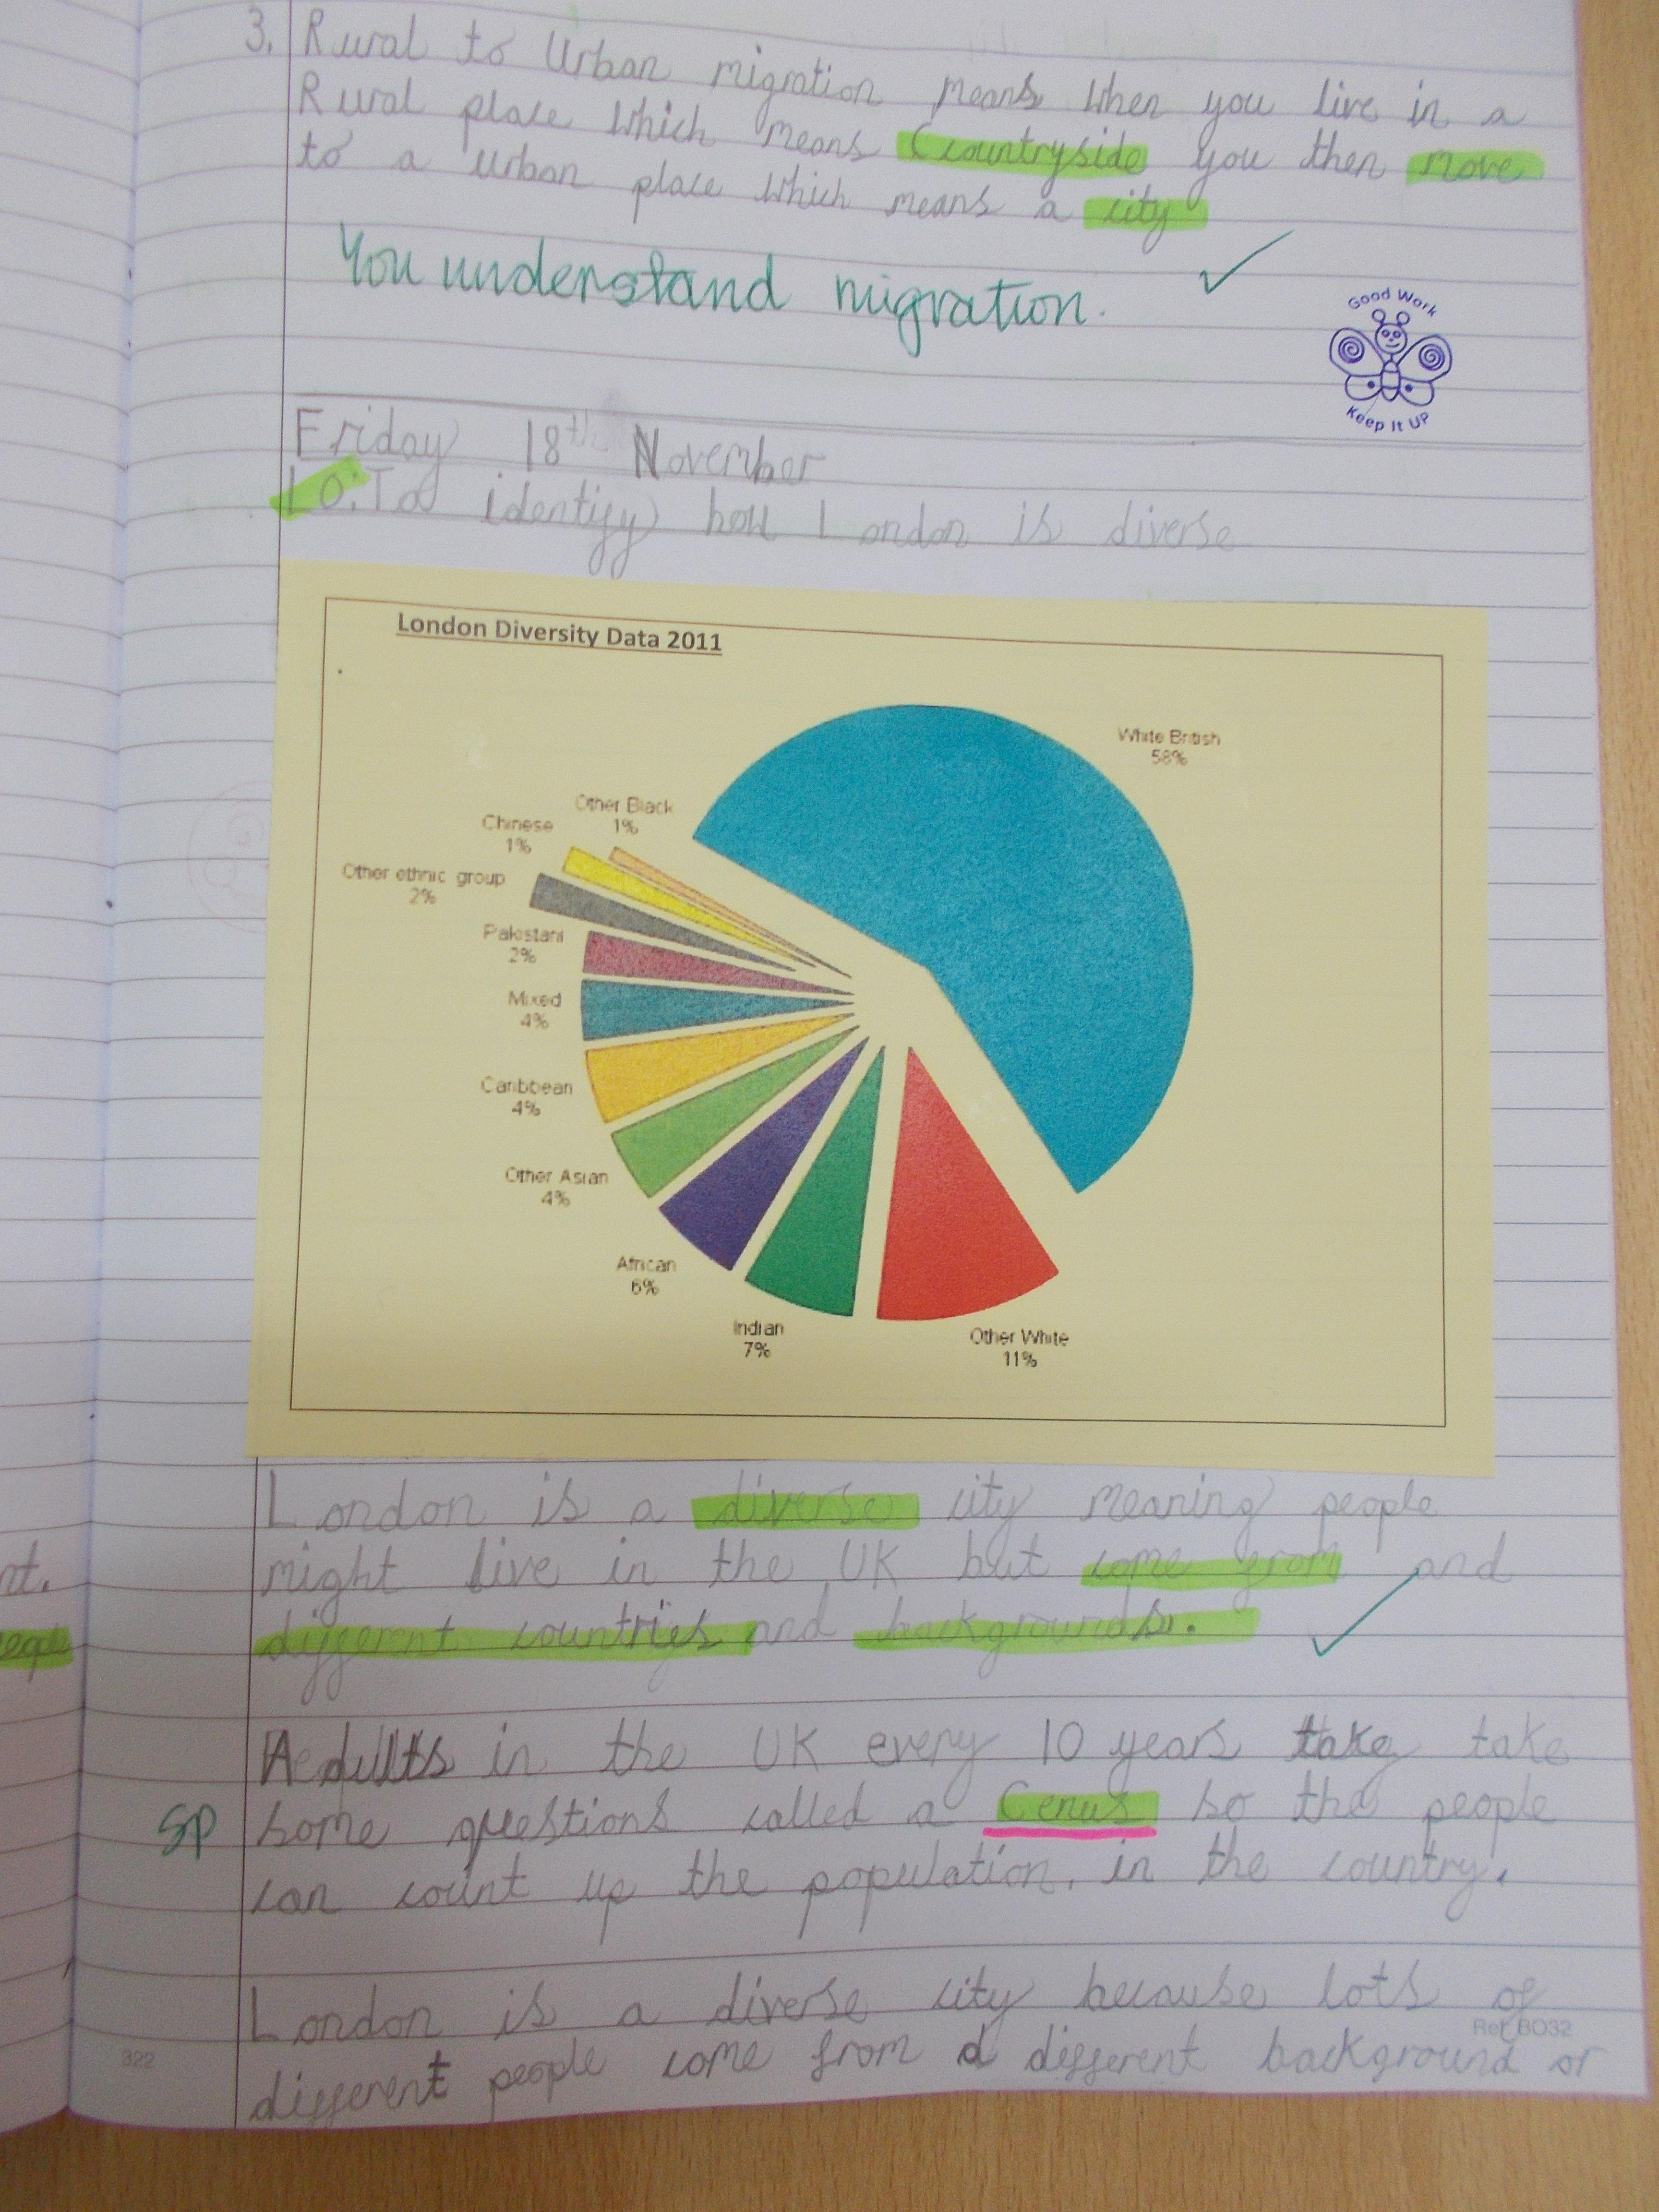 3. Rural to Urban migration means when you live in a
Rural place which means Ccountryside you then move
to a urban place which means a city
You understand migration.
Good Work
Keep It UP
Friday 18th November
LO: To identify how London is diverse
London Diversity Data 2011
White British
58%
Other Black
1%
Chinese
1%
Other ethnic group
2%
Pakistani
2%
Mixed
4%
Caribbean
4%
Other Asian
4%
African
6%
Indian
7%
Other White
11%
London is a diverse city meaning people
might live in the UK but come from and
differnt countries and backgrounds.
nt.
eople
Adults in the UK every 10 years take take
SP some questions called a Cenus so the people
can count up the population, in the country.
London is a diverse city because lots of
Ref BO32
different people come from d different background or
322